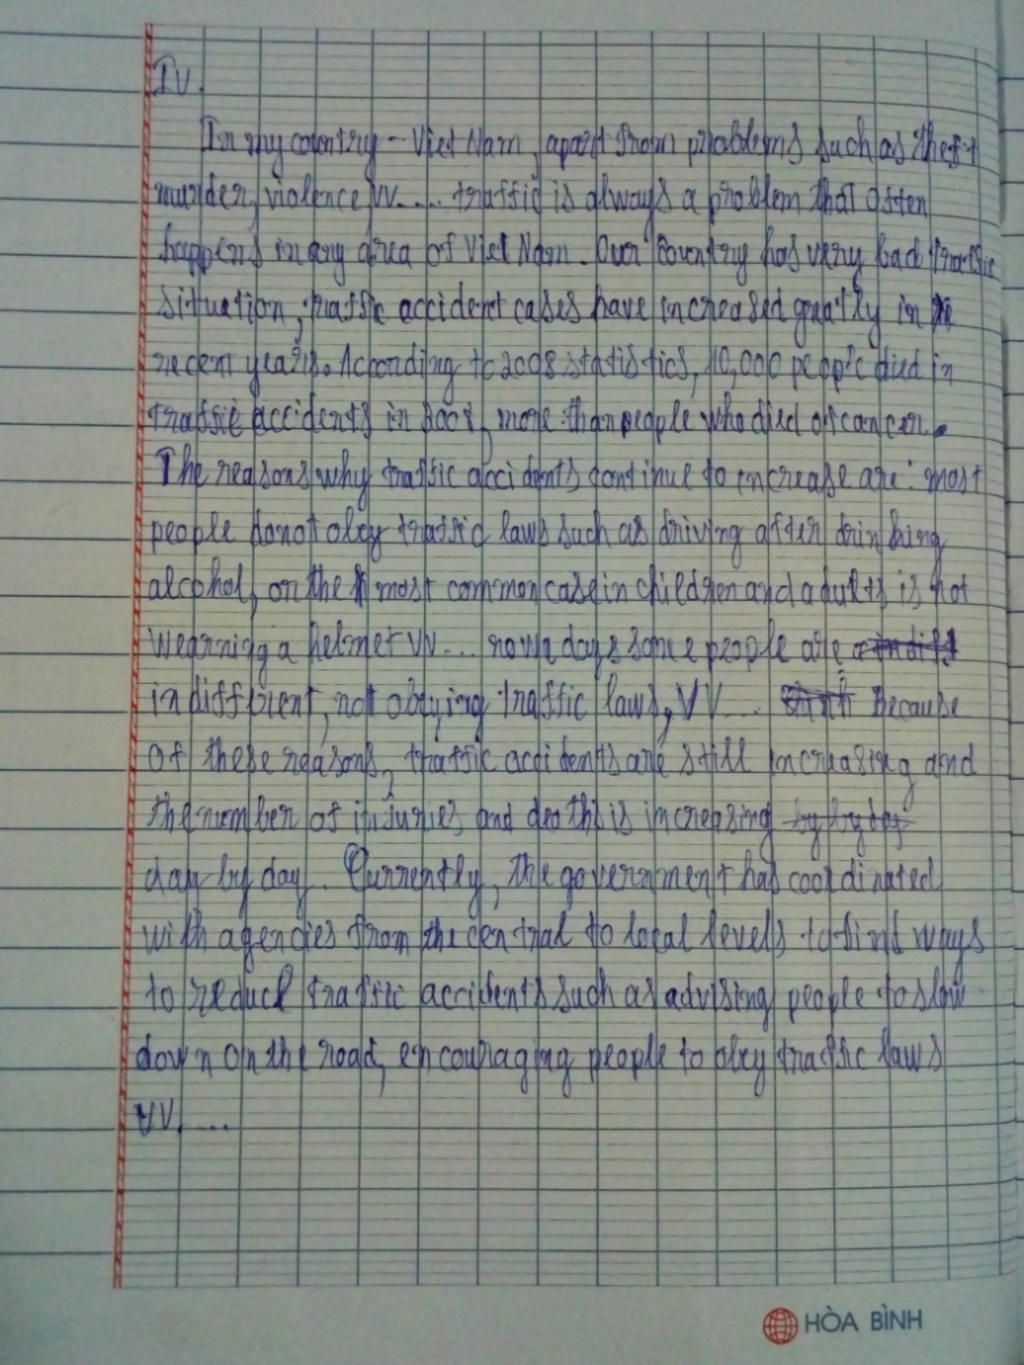 IV.
In my country - Viet Nam, apart from problems such as theft
murder, violence, VV.... traffic is always a problem that often
happens in any area of Viet Nam. Our country has very bad traffic
situation, traffic accident cases have increased greatly in
recent years. According to 2008 statistics, 10,000 people died in
traffic accidents in 2008, more than people who died of cancer.
The reasons why traffic accidents continue to increase are: most
people donot obey traffic laws such as driving after drinking
alcohol, or the most common case in children and adults is not
wearning a helmet VV... nowadays some people are
indifferent, not obeying traffic laws, VV.... Because
of these reasons, traffic accidents are still increasing and
the number of injuries and deaths is increasing
day by day. Currently, the government has coordinated
with agencies from the central to local levels to find ways
to reduce traffic accidents such as advising people to slow
down on the road, encouraging people to obey traffic laws
VV.....
HÒA BÌNH